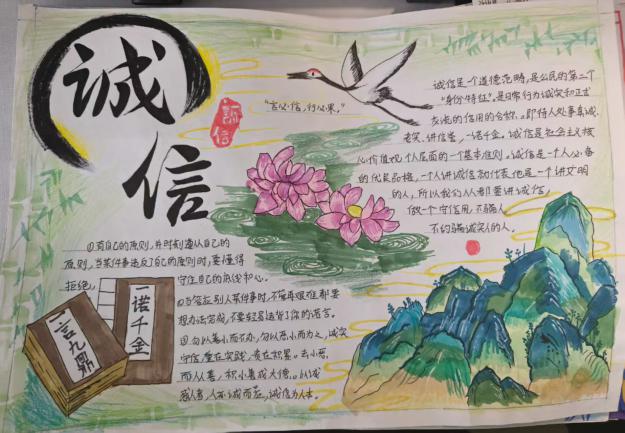 诚
信
诚信
"言必信,行必果。"
诚信是一个道德范畴,是公民的第二个
"身份特征",是日常行为诚实和正式
交流的信用的合称。即待人处事真诚、
老实、讲信誉,一诺千金。诚信是社会主义核
心价值观个人层面的一个基本准则。诚信是一个人必备
的优良品格,一个人讲诚信就代表他是一个讲文明
的人,所以我们人人都要讲诚信,
做一个守信用,不骗人,
不约骗诚实人的人。
①有自己的原则,并时刻遵从自己的
原则,当某件事违反了自己的原则时,要懂得
拒绝,守住自己的底线和心。
②当答应别人某件事时,不管再艰难都要
想办法完成,不要轻易违背了你的诺言。
③勿以善小而不为,勿以恶小而为之,诚实
守信,重在实践,贵在积累。去小恶
而从善,积小善成大德。以诚
感人者,人亦诚而应,诚信为人本。
一诺千金
一言九鼎